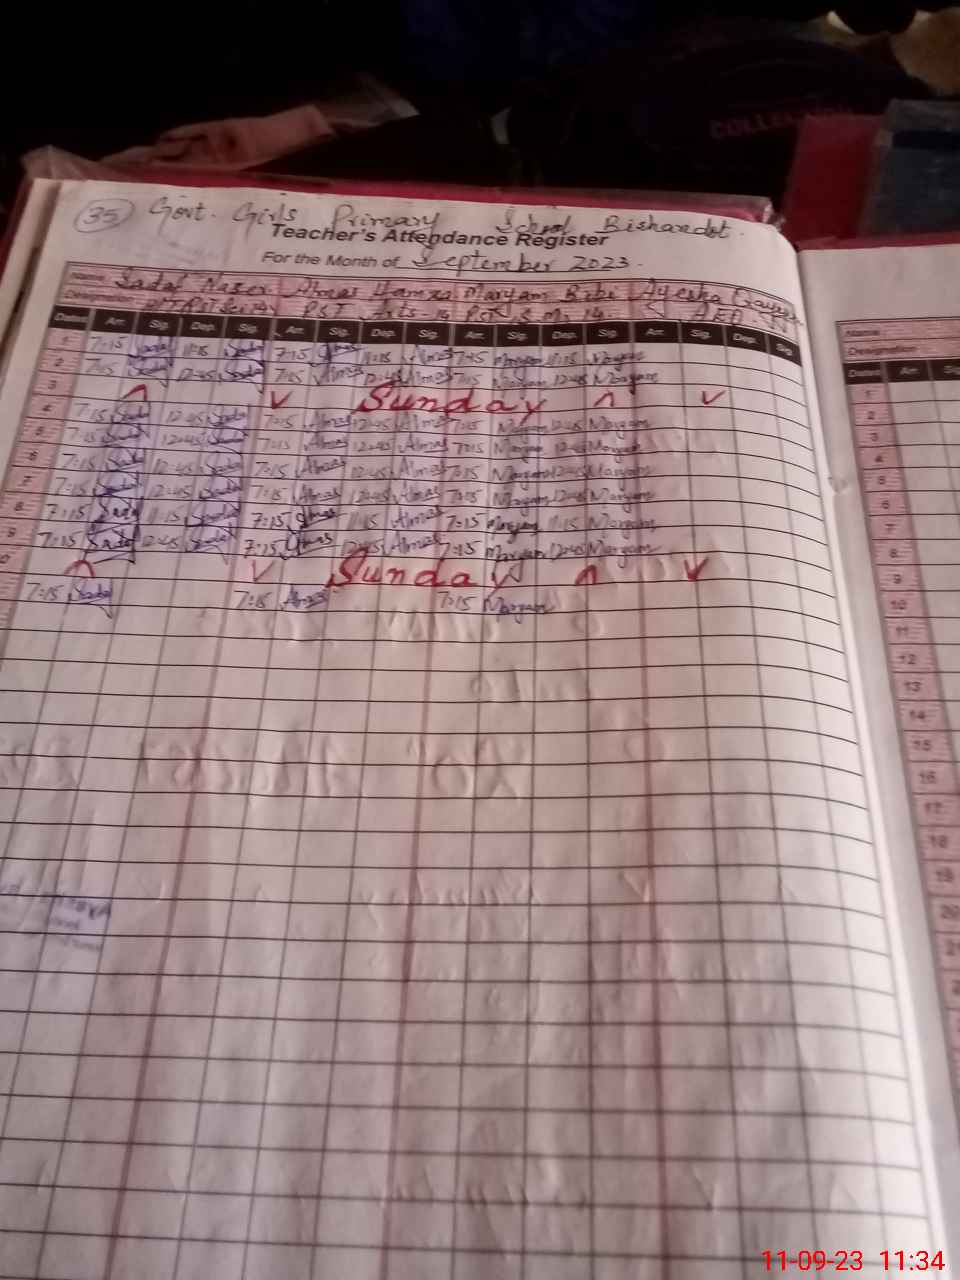 COLLECTION
35 Govt. Girls Primary School Bishandot.
Teacher's Attendance Register
For the Month of September 2023.
Name Sadaf Naser Almas Hamza Maryam Bibi Ayesha
Designation PST Arts 14 PST S.M. 14 AEO
Dates Arr. Sig. Dep. Sig. Arr. Sig. Dep. Sig. Arr. Sig. Dep. Sig. Arr. Sig. Dep. Sig.
1 7:15 Sadaf 11:15 Sadaf 7:15 Almas 11:15 Almas 7:15 Maryam 11:15 Maryam
2 7:15 Sadaf 12:45 Sadaf 7:15 Almas 12:45 Almas 7:15 Maryam 12:45 Maryam
3 Sunday
4 7:15 Sadaf 12:45 Sadaf 7:15 Almas 12:45 Almas 7:15 Maryam 12:45 Maryam
5 7:15 Sadaf 12:45 Sadaf 7:15 Almas 12:45 Almas 7:15 Maryam 12:45 Maryam
6 7:15 Sadaf 12:45 Sadaf 7:15 Almas 12:45 Almas 7:15 Maryam 12:45 Maryam
7 7:15 Sadaf 12:45 Sadaf 7:15 Almas 12:45 Almas 7:15 Maryam 12:45 Maryam
8 7:15 Sadaf 11:15 Sadaf 7:15 Almas 11:15 Almas 7:15 Maryam 11:15 Maryam
9 7:15 Sadaf 12:45 Sadaf 7:15 Almas 12:45 Almas 7:15 Maryam 12:45 Maryam
Sunday
7:15 Sadaf 7:15 Almas 7:15 Maryam
Name
Designation
Dates Arr.
1
2
3
4
5
6
7
8
9
10
11
12
13
14
15
16
17
18
19
20
11-09-23 11:34